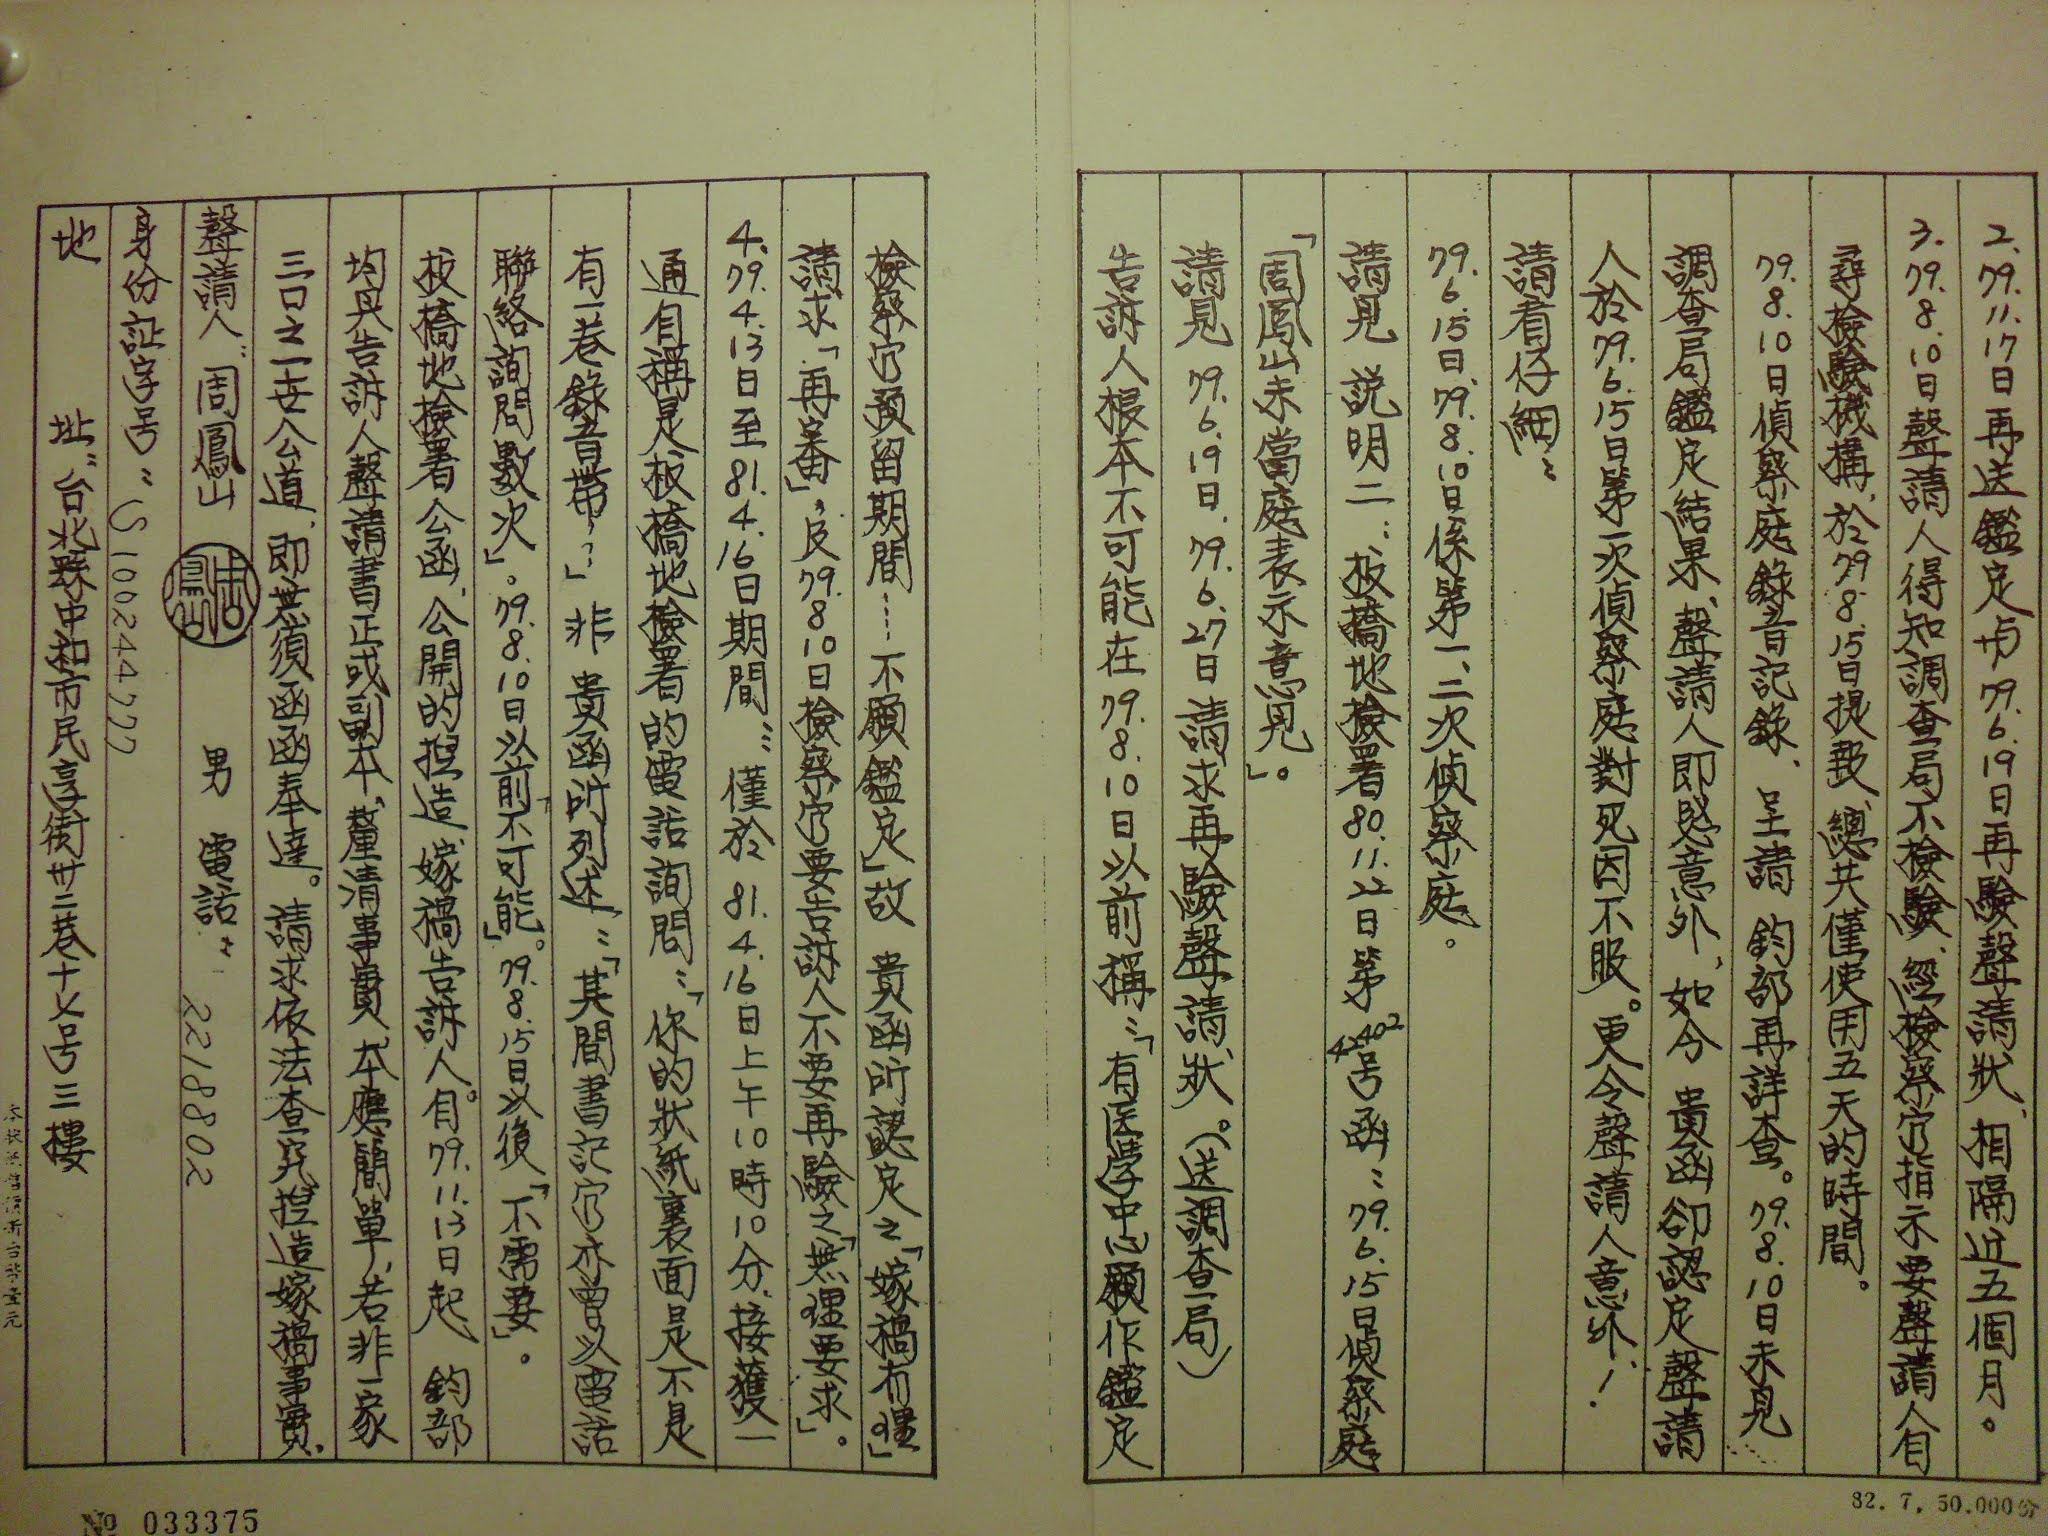 2. 79.11.17日再送鑑定与79.6.19日再驗聲請狀、相隔近五個月。
3. 79.8.10日聲請人得知調查局不檢驗、經檢察官指示要聲請人自
尋檢驗機構、於79.8.15日提報、總共僅使用五天的時間。
79.8.10日偵察庭錄音記錄、呈請 鈞部再詳查。79.8.10日未見
調查局鑑定結果、聲請人即感意外、如今 貴函卻認定聲請
人於79.6.15日第一次偵察庭對死因不服。更令聲請人意外！
請看仔細：
79.6.15日、79.8.10日係第一、二次偵察庭。
請見 說明二：板橋地檢署80.11.22日第 号函：79.6.15日偵察庭
「周鳳山未當庭表示意見」。
請見 79.6.19日、79.6.27日請求再驗聲請狀。（送調查局）
告訴人根本不可能在79.8.10日以前稱：「有医學中心願作鑑定
檢察官預留期間……不願鑑定」故 貴函所認定之「嫁禍有理」
請求「再審」，反79.8.10日檢察官要告訴人不要再驗之「無理要求」。
4. 79.4.13日至81.4.16日期間：僅於81.4.16日上午10時10分、接獲一
通自稱是板橋地檢署的電話詢問：「你的狀紙裏面是不是
有一卷錄音帶…」非 貴函所列述：「其間書記官亦曾以電話
聯絡詢問數次」。79.8.10日以前「不可能」。79.8.15日以後「不需要」。
板橋地檢署公函、公開的捏造、嫁禍告訴人。自79.11.13日起 鈞部
均丹告訴人聲請書正或副本、釐清事實、本應簡單、若非一家
三口之一世公道、即甚須函函奉達。請求依法查究捏造嫁禍事實、
聲請人：周鳳山 男 電話：2218802
身份証字号：S100244777
地 址：台北縣中和市民享街卅二巷十七号三樓
№ 033375
82.7.50.000份